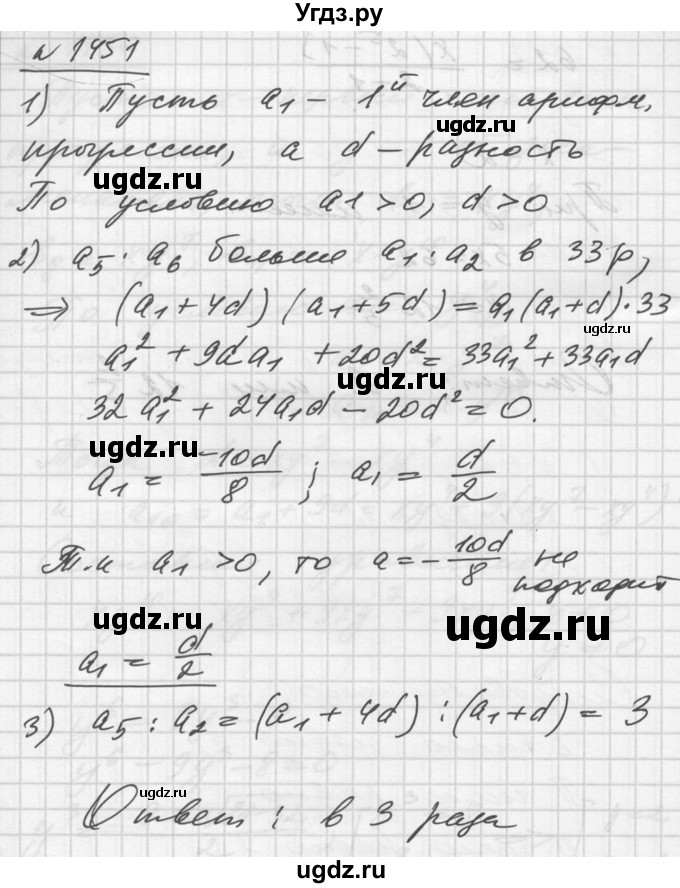 Угдз.ру
№ 1451
1) Пусть a₁ – 1й член арифм.
ugdz.ru
прогрессии, а d – разность
ugdz.ru
По условию a1 > 0, d > 0
2) a₅ · a₆ больше a₁ · a₂ в 33 р,
⇒ (a₁ + 4d) (a₁ + 5d) = a₁(a₁ + d) · 33
ugdz.ru
a₁² + 9da₁ + 20d² = 33a₁² + 33a₁d
ugdz.ru
32a₁² + 24a₁d – 20d² = 0.
ugdz.ru
a₁ = –10d/8 ; a₁ = d/2
Т.к a₁ > 0, то a = – 10d/8 не
подходит
ugdz.ru ugdz.ru
a₁ = d/2
3) a₅ : a₂ = (a₁ + 4d) : (a₁ + d) = 3
ugdz.ru
Ответ : в 3 раза
ugdz.ru